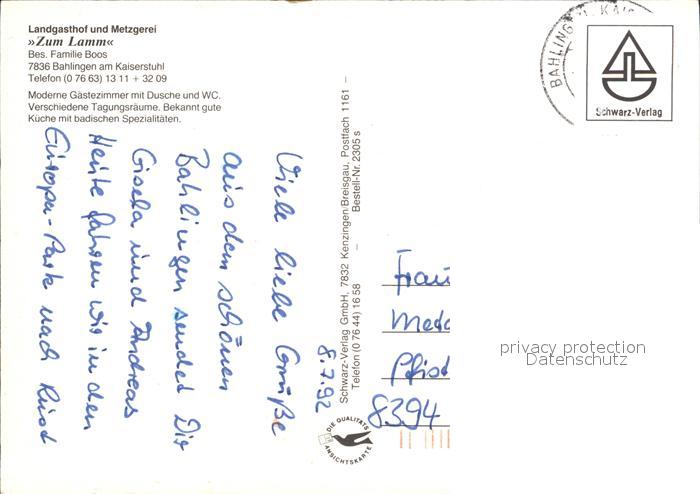 Landgasthof und Metzgerei
»Zum Lamm«
Bes. Familie Boos
7836 Bahlingen am Kaiserstuhl
Telefon (0 76 63) 13 11 + 32 09
Moderne Gästezimmer mit Dusche und WC.
Verschiedene Tagungsräume. Bekannt gute
Küche mit badischen Spezialitäten.
8.7.92
Viele liebe Grüße
aus dem schönen
Bahlingen sendet Dir
Gisela und Andreas
Heute fahren wir in den
Europa-Park nach Rust
Schwarz-Verlag GmbH, 7832 Kenzingen/Breisgau, Postfach 1161 –
Telefon (0 76 44) 16 58 – Bestell-Nr. 2305 s
DIE QUALITÄTS
ANSICHTSKARTE
BAHLINGEN
Schwarz-Verlag
Frau
8394
privacy protection
Datenschutz